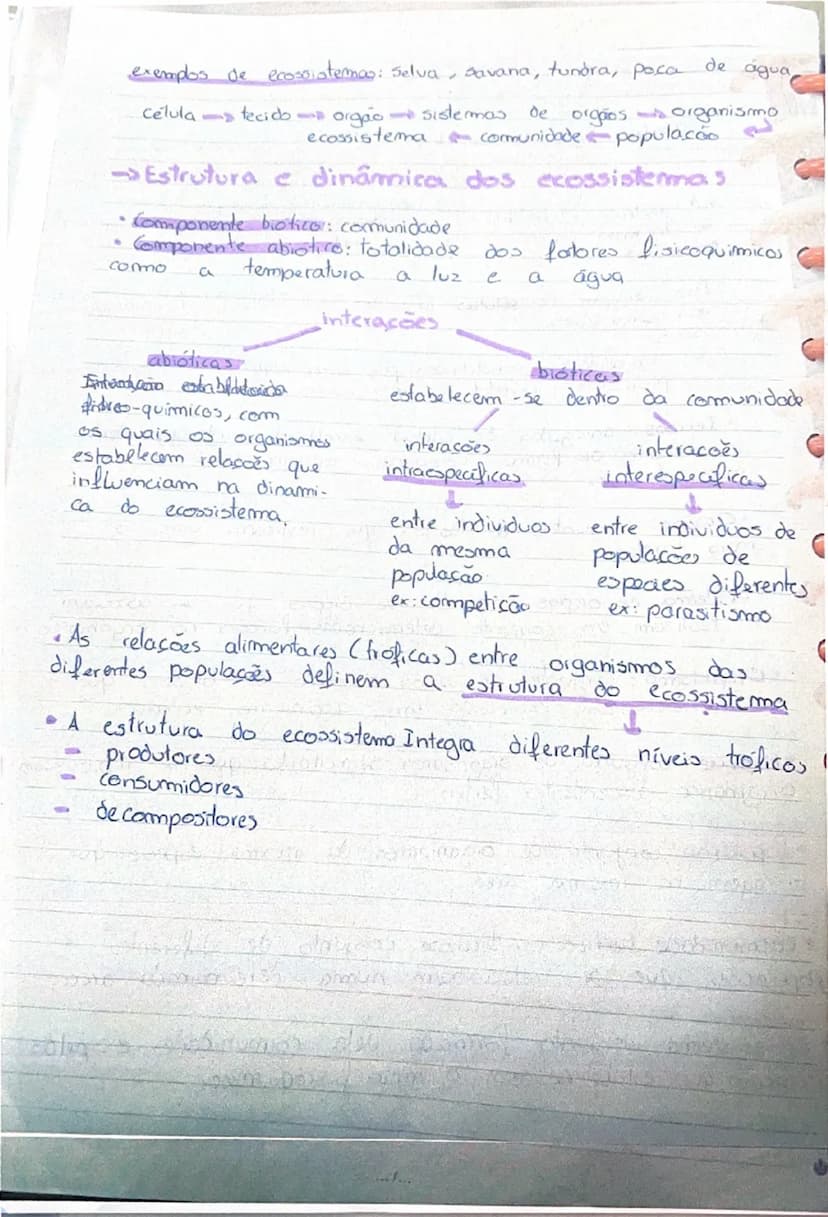 exemplos de ecossistemas: selva, savana, tundra, poça de água
célula → tecido → orgão → sistemas de orgãos → organismo
ecossistema ← comunidade ← população
→ Estrutura e dinâmica dos ecossistemas
• Componente biótico: comunidade
• Componente abiótico: totalidade dos fatores fisicoquimicos
como a temperatura a luz e a água
interações
abióticas
químicos, com
os quais os organismos
estabelecem relações que
influenciam na dinami-
ca do ecossistema.
bióticas
estabelecem-se dentro da comunidade
interações
intraespecíficas
↓
entre individuos
da mesma
população
ex: competição
interações
interespecificas
↓
entre individuos de
populações de
especies diferentes
ex: parasitismo
• As relações alimentares (tróficas) entre organismos das
diferentes populações definem a estrutura do ecossistema
↓
• A estrutura do ecossistema Integra diferentes níveis tróficos
- produtores
- consumidores
- decompositores